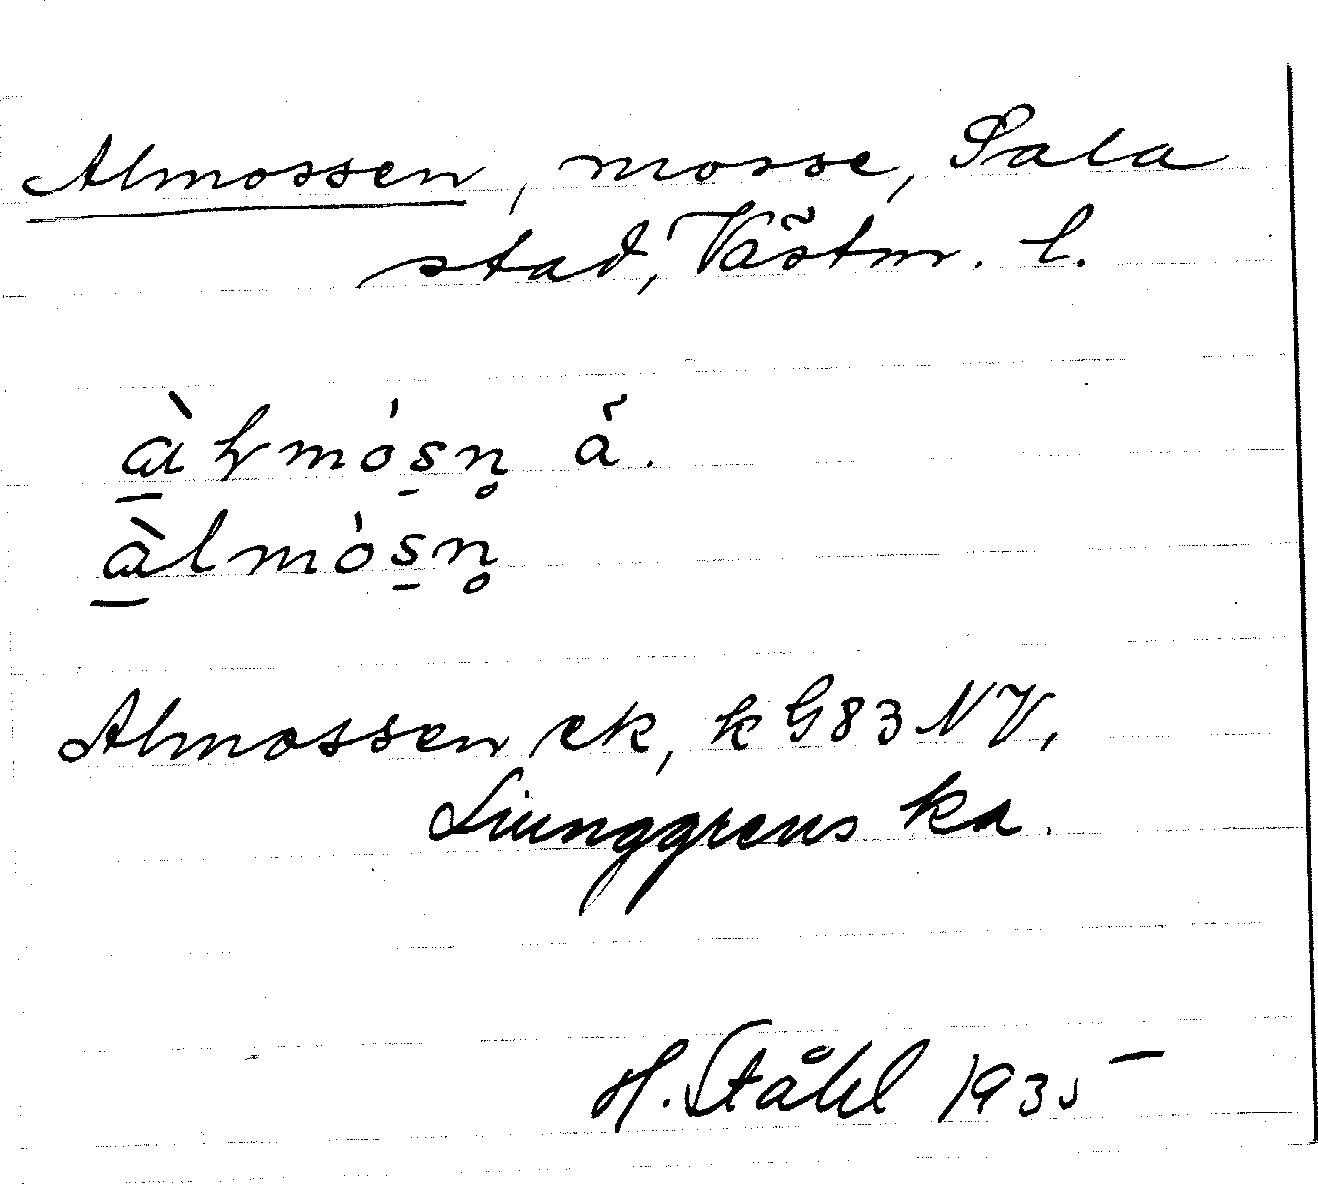 Almossen, mosse, Sala
stad, Västm. l.
àl̥mósn̥ ä.
àlmósn̥
Almossen ek, k G83 NV,
Liunggrens ka.
H. Ståhl 1935